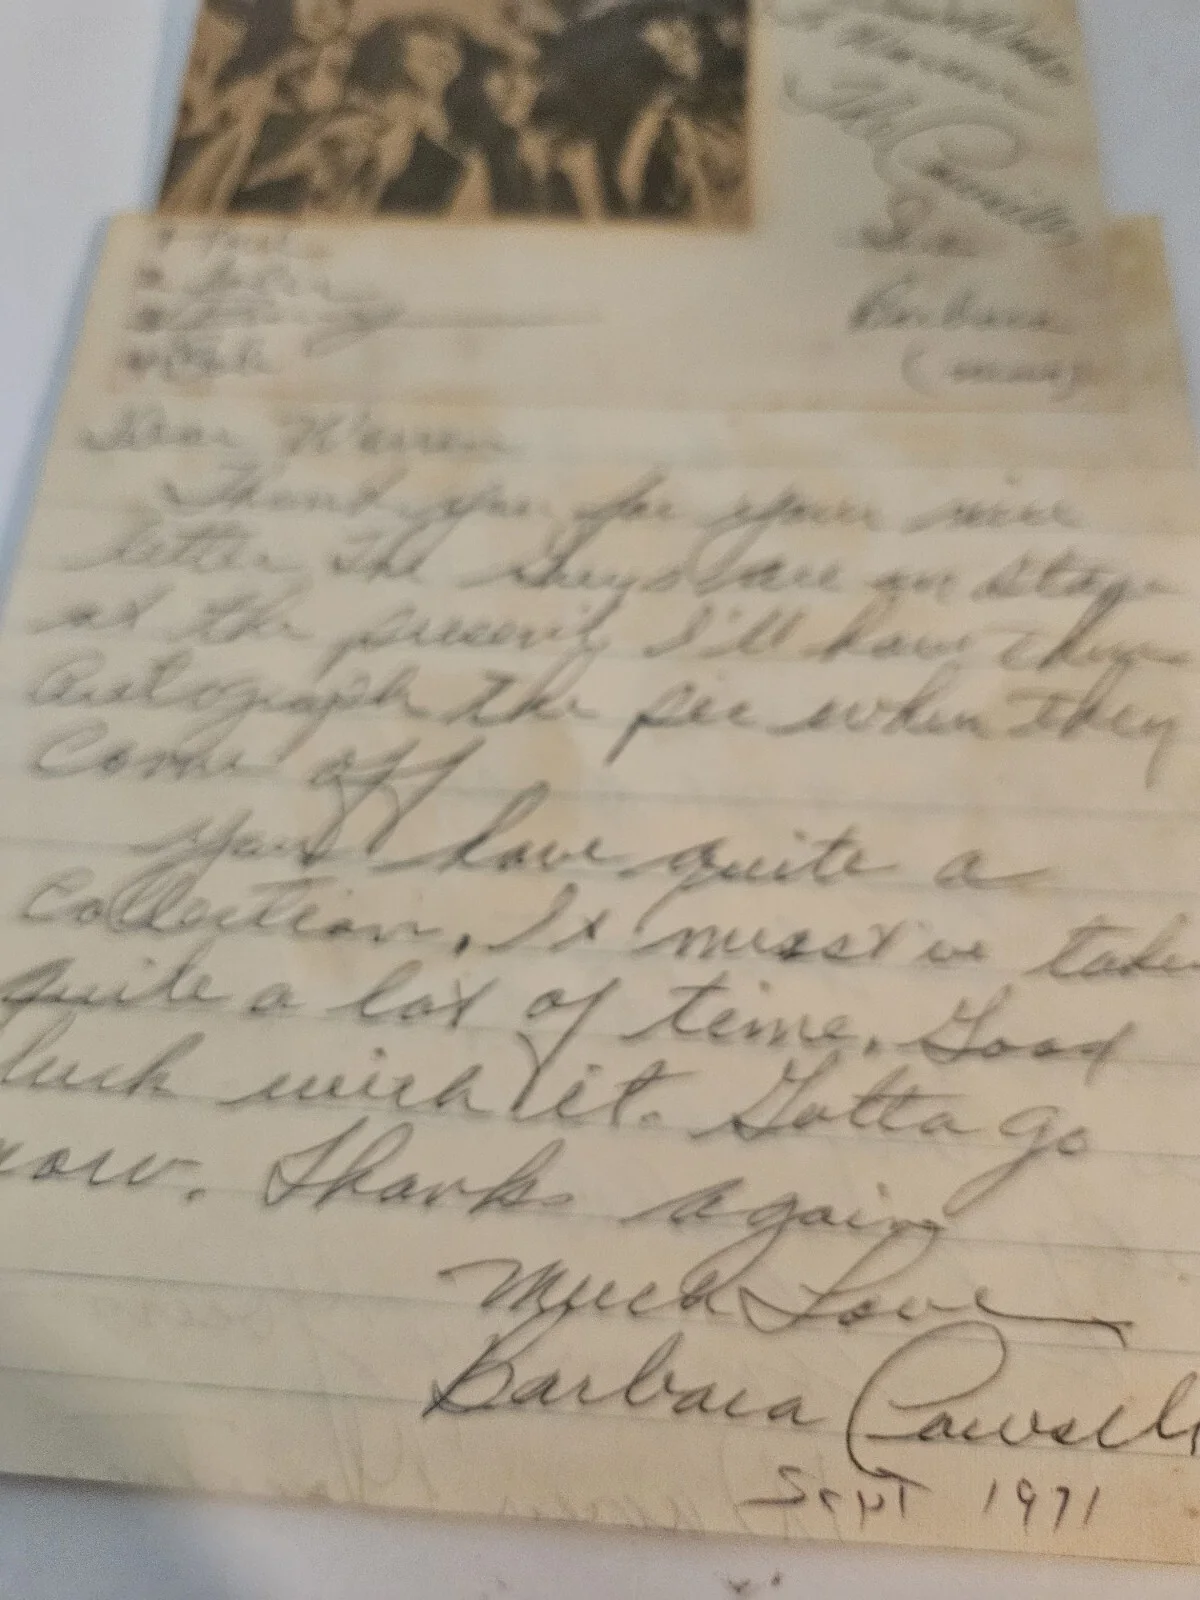 The Cowsills
Paul
Barry
Bob
Barbara
Dear Warren
Thank you for your nice
letter. The Guys are on stage
at the present, I'll have them
Autograph the pic when they
come off
You have quite a
Collection. It must've taken
quite a lot of time. Good
luck with it. Gotta go
now. Thanks again
Much Love
Barbara Cowsill
Sept 1971